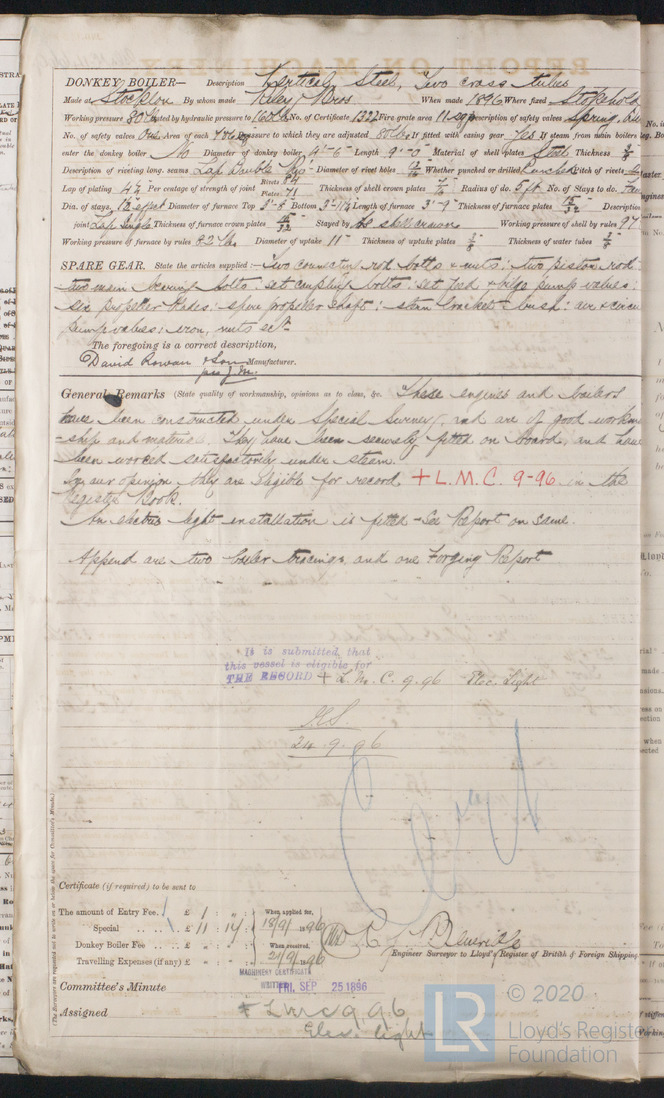 DONKEY BOILER— Description Vertical Steel, Two cross tubes
Made at Stockton By whom made Riley Bros When made 1896 Where fixed Stokehold
Working pressure 80lb tested by hydraulic pressure to 160lb No. of Certificate 1322 Fire grate area 11 sq ft Description of safety valves Spring
No. of safety valves One Area of each Pressure to which they are adjusted 80lbs If fitted with easing gear Yes If steam from main boilers
enter the donkey boiler No Diameter of donkey boiler 4'-6" Length 9'-0" Material of shell plates Steel Thickness 3/8
Description of riveting long. seams Lap Double Riv Diameter of rivet holes Whether punched or drilled Punched Pitch of rivets
Lap of plating Per centage of strength of joint Rivets 84 Plates 71 Thickness of shell crown plates Radius of do. 5ft No. of Stays to do.
Dia. of stays. Diameter of furnace Top Bottom Length of furnace 3'-9" Thickness of furnace plates 15/32 Description
joint Lap Single Thickness of furnace crown plates 15/32 Stayed by As shell crown Working pressure of shell by rules 97
Working pressure of furnace by rules Diameter of uptake 11" Thickness of uptake plates 3/8 Thickness of water tubes 3/8
SPARE GEAR. State the articles supplied:— Two connecting rod bolts & nuts: two piston rod:
two main bearing bolts: set coupling bolts: set feed & bilge pump valves:
six propeller blades: spare propeller shaft: stern bracket bush: air & circu
pump valves: iron, nuts &c
The foregoing is a correct description,
David Rowan & Son Manufacturer.
General Remarks (State quality of workmanship, opinions as to class, &c. These engines and boilers
have been constructed under Special Survey, and are of good workman
-ship and material. They have been securely fitted on board, and have
been worked satisfactorily under steam.
In our opinion they are eligible for record + L.M.C. 9-96 in the
Register Book.
An electric light installation is fitted - See Report on same.
Append are two boiler tracings and one Forging Report
It is submitted, that
this vessel is eligible for
THE RECORD + L.M.C. 9.96 Elec. Light
24.9.96
Certificate (if required) to be sent to
The amount of Entry Fee. £ 1 : " :
Special £ 11 : 14 :
Donkey Boiler Fee £ " : " :
Travelling Expenses (if any) £ " : " :
When applied for,
18/9/1896
When received,
21/9/1896
Engineer Surveyor to Lloyd's Register of British & Foreign Shipping.
MACHINERY CERTIFICATE
WRITTEN
Committee's Minute FRI. SEP 25 1896
Assigned + L.M.C. 9.96
Elec. light
(The Surveyors are requested not to write on or below the space for Committee's Minute.)
LR
© 2020
Lloyd's Register
Foundation